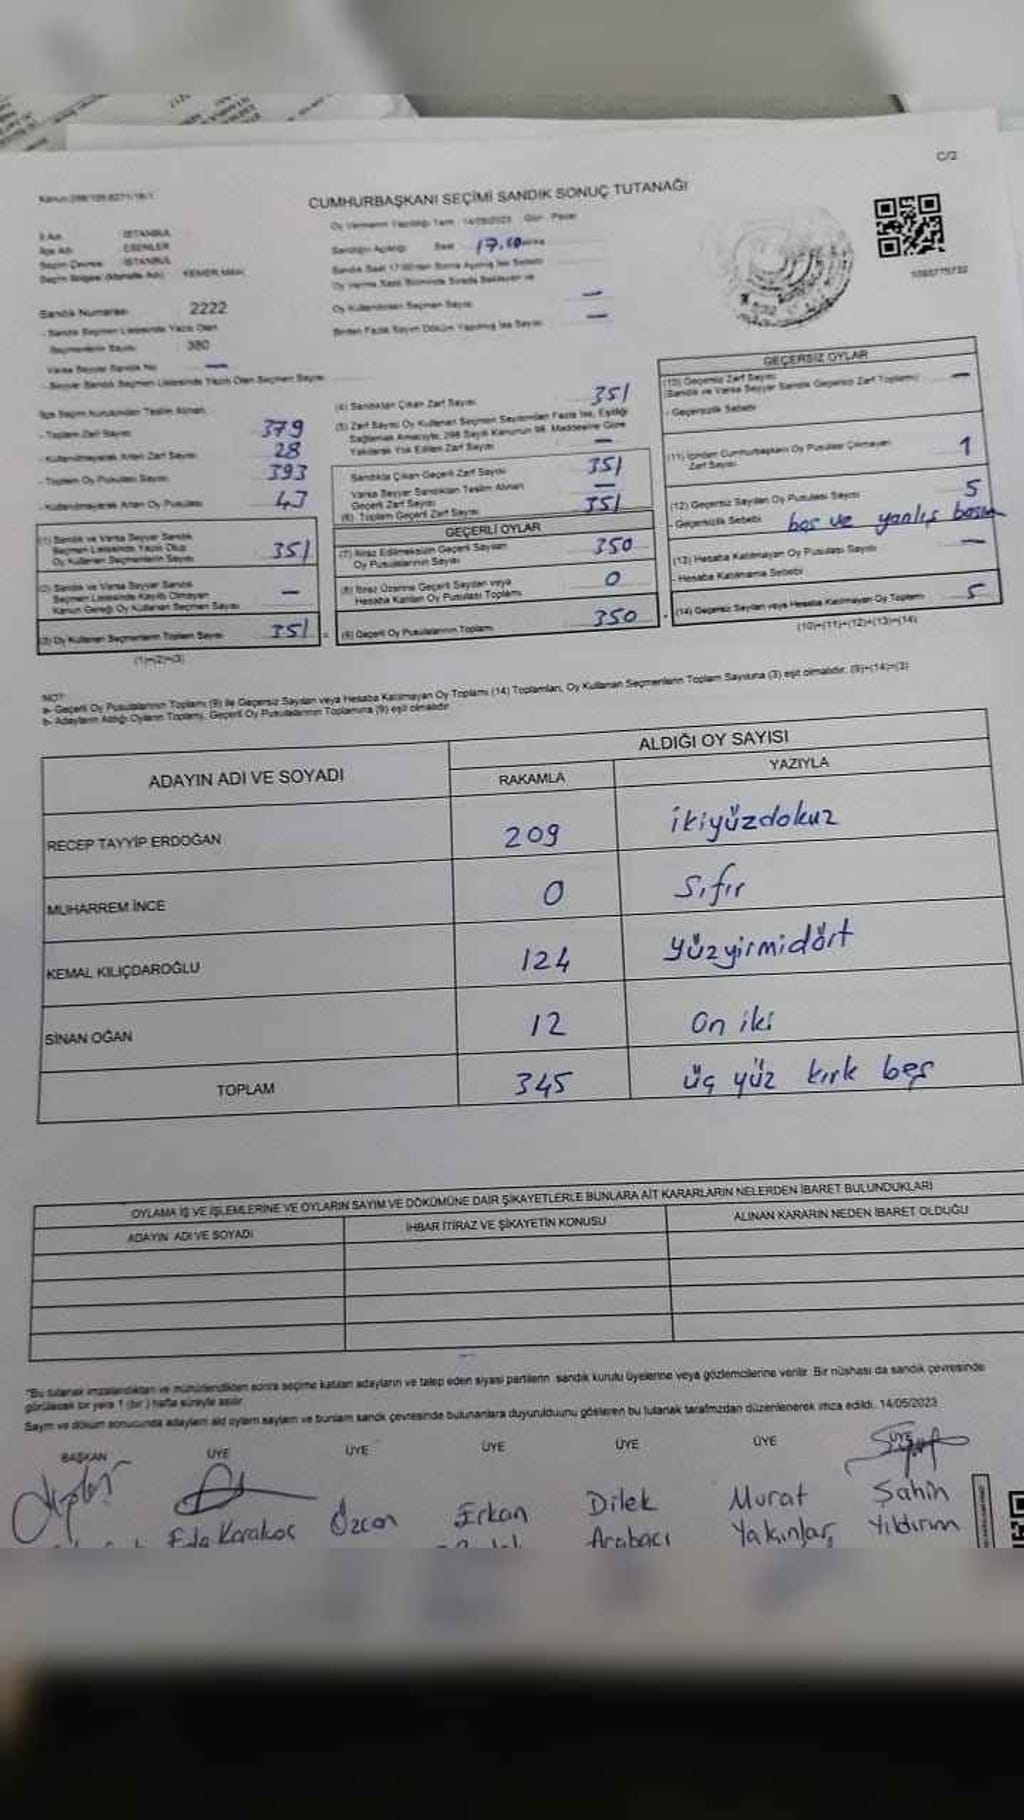 C/2
CUMHURBAŞKANI SEÇİMİ SANDIK SONUÇ TUTANAĞI
Oy Vermenin Yapıldığı Tarih : 14/05/2023 Gün : Pazar
İSTANBUL
ESENLER
İSTANBUL
KEMER MAH.
Sandığın Açıldığı Saat 17.10
Sandık Numarası 2222
- Sandık Seçmen Listesinde Yazılı Olan
Seçmenlerin Sayısı 380
Oy Kullandırılan Seçmen Sayısı —
Birden Fazla Sayım Döküm Yapılmış İse Sayısı —
Varsa Seyyar Sandık No —
- Seyyar Sandık Seçmen Listesinde Yazılı Olan Seçmen Sayısı
İlçe Seçim Kurulundan Teslim Alınan
- Toplam Zarf Sayısı 379
- Kullanılmayarak Artan Zarf Sayısı 28
- Toplam Oy Pusulası Sayısı 393
- Kullanılmayarak Artan Oy Pusulası 43
(1) Sandık ve Varsa Seyyar Sandık
Seçmen Listesinde Yazılı Olup
Oy Kullanan Seçmenlerin Sayısı 351
(2) Sandık ve Varsa Seyyar Sandık
Seçmen Listesinde Kayıtlı Olmayan
Kanun Gereği Oy Kullanan Seçmen Sayısı —
(3) Oy Kullanan Seçmenlerin Toplam Sayısı 351
(1)+(2)=(3)
(4) Sandıktan Çıkan Zarf Sayısı 351
(5) Zarf Sayısı Oy Kullanan Seçmen Sayısından Fazla İse, Eşitliği
Sağlamak Amacıyla, 298 Sayılı Kanunun 98. Maddesine Göre
Yakılarak Yok Edilen Zarf Sayısı —
Sandıkta Çıkan Geçerli Zarf Sayısı 351
Varsa Seyyar Sandıktan Teslim Alınan
Geçerli Zarf Sayısı —
(6) Toplam Geçerli Zarf Sayısı 351
GEÇERLİ OYLAR
(7) İtiraz Edilmeksizin Geçerli Sayılan
Oy Pusulasının Sayısı 350
(8) İtiraz Üzerine Geçerli Sayılan veya
Hesaba Katılan Oy Pusulası Toplamı 0
(9) Geçerli Oy Pusulalarının Toplamı 350
GEÇERSİZ OYLAR
(10) Geçersiz Zarf Sayısı
(Sandık ve Varsa Seyyar Sandık Geçersiz Zarf Toplamı) —
- Geçersizlik Sebebi
(11) İçinden Cumhurbaşkanı Oy Pusulası Çıkmayan
Zarf Sayısı 1
(12) Geçersiz Sayılan Oy Pusulası Sayısı 5
- Geçersizlik Sebebi boş ve yanlış basım
(13) Hesaba Katılmayan Oy Pusulası Sayısı —
- Hesaba Katılmama Sebebi
(14) Geçersiz Sayılan veya Hesaba Katılmayan Oy Toplamı 5
(10)+(11)+(12)+(13)=(14)
NOT:
a- Geçerli Oy Pusulalarının Toplamı (9) ile Geçersiz Sayılan veya Hesaba Katılmayan Oy Toplamı (14) Toplamları, Oy Kullanan Seçmenlerin Toplam Sayısına (3) eşit olmalıdır. (9)+(14)=(3)
b- Adayların Aldığı Oyların Toplamı, Geçerli Oy Pusulalarının Toplamına (9) eşit olmalıdır.
ADAYIN ADI VE SOYADI ALDIĞI OY SAYISI
RAKAMLA YAZIYLA
RECEP TAYYİP ERDOĞAN 209 ikiyüzdokuz
MUHARREM İNCE 0 Sıfır
KEMAL KILIÇDAROĞLU 124 yüzyirmidört
SİNAN OĞAN 12 On iki
TOPLAM 345 üç yüz kırk beş
OYLAMA İŞ VE İŞLEMLERİNE VE OYLARIN SAYIM VE DÖKÜMÜNE DAİR ŞİKAYETLERLE BUNLARA AİT KARARLARIN NELERDEN İBARET BULUNDUKLARI
ADAYIN ADI VE SOYADI İHBAR İTİRAZ VE ŞİKAYETİN KONUSU ALINAN KARARIN NEDEN İBARET OLDUĞU
*Bu tutanak imzalandıktan ve mühürlendikten sonra seçime katılan adayların ve talep eden siyasi partilerin sandık kurulu üyelerine veya gözlemcilerine verilir. Bir nüshası da sandık çevresinde
görülecek bir yere 1 (bir) hafta süreyle asılır.
Sayım ve döküm sonucunda adayların aldığı oyların sayıları ve bunların sandık çevresinde bulunanlara duyurulduğunu gösteren bu tutanak tarafımızdan düzenlenerek imza edildi. 14/05/2023
BAŞKAN ÜYE ÜYE ÜYE ÜYE ÜYE ÜYE
Eda Karakoç Özcan Erkan Dilek Murat Şahin
Arabacı Yakınlar Yıldırım